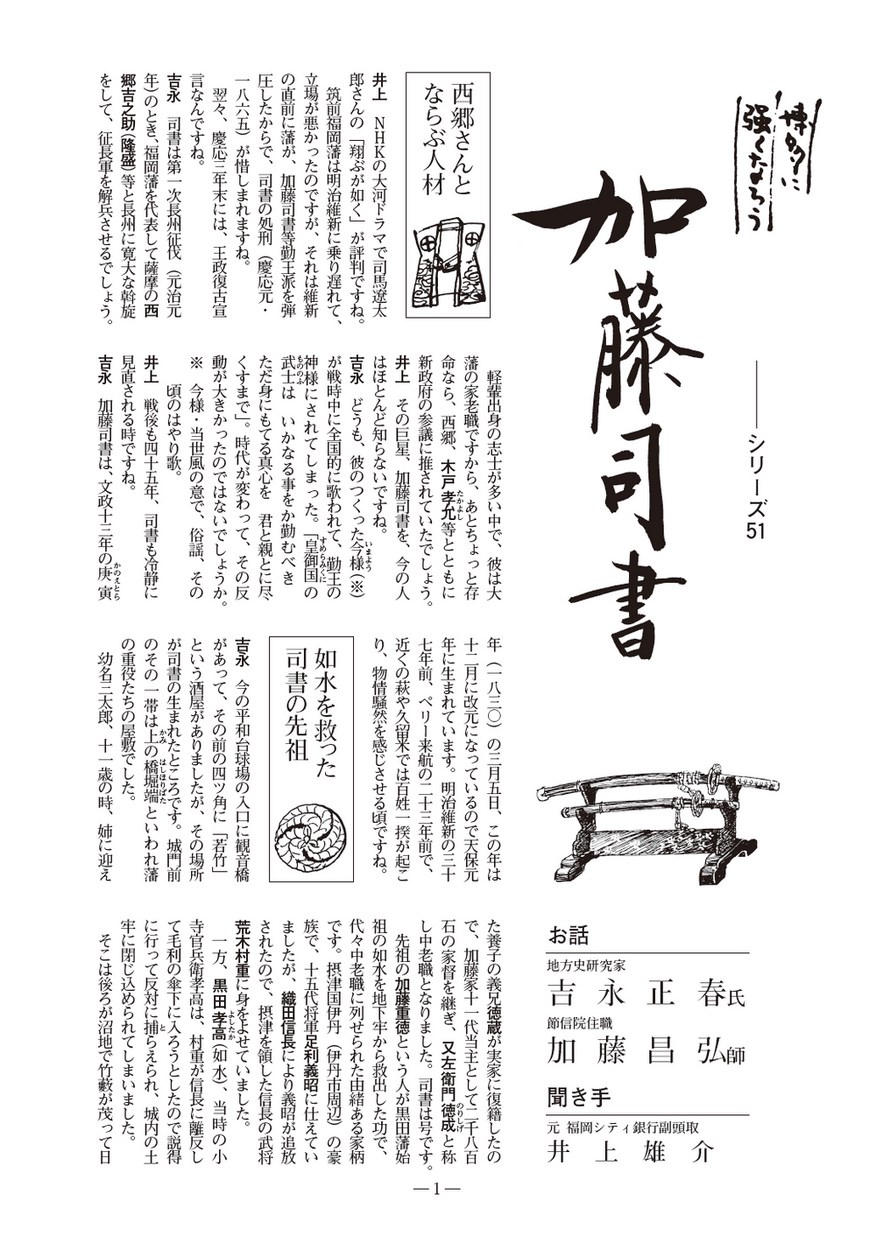 博多に
強くなろう
加藤司書
――シリーズ51
お話
地方史研究家
吉永正春氏
節信院住職
加藤昌弘師
聞き手
元 福岡シティ銀行副頭取
井上雄介
西郷さんと
ならぶ人材
井上　NHKの大河ドラマで司馬遼太
郎さんの「翔ぶが如く」が評判ですね。
　筑前福岡藩は明治維新に乗り遅れて、
立場が悪かったのですが、それは維新
の直前に藩が、加藤司書等勤王派を弾
圧したからで、司書の処刑（慶応元・
一八六五）が惜しまれますね。
　翌々、慶応三年末には、王政復古宣
言なんですね。
吉永　司書は第一次長州征伐（元治元
年）のとき、福岡藩を代表して薩摩の西
郷吉之助（隆盛）等と長州に寛大な斡旋
をして、征長軍を解兵させるでしょう。
　軽輩出身の志士が多い中で、彼は大
藩の家老職ですから、あとちょっと存
命なら、西郷、木戸孝允たかよし等とともに
新政府の参議に推されていたでしょう。
井上　その巨星、加藤司書を、今の人
はほとんど知らないですね。
吉永　どうも、彼のつくった今様いまよう（※）
が戦時中に全国的に歌われて、勤王の
神様にされてしまった。「皇御国すめらみくにの
武士もののふは　いかなる事をか勤むべき
ただ身にもてる真心を　君と親とに尽
くすまで」。時代が変わって、その反
動が大きかったのではないでしょうか。
※　今様・当世風の意で、俗謡、その
頃のはやり歌。
井上　戦後も四十五年、司書も冷静に
見直される時ですね。
吉永　加藤司書は、文政十三年の庚寅かのえとら
年（一八三〇）の三月五日、この年は
十二月に改元になっているので天保元
年に生まれています。明治維新の三十
七年前、ペリー来航の二十三年前で、
近くの萩や久留米では百姓一揆が起こ
り、物情騒然を感じさせる頃ですね。
如水を救った
司書の先祖
吉永　今の平和台球場の入口に観音橋
があって、その前の四ツ角に「若竹」
という酒屋がありましたが、その場所
が司書の生まれたところです。城門前
のその一帯は上かみの橋堀端はしほりばたといわれ藩
の重役たちの屋敷でした。
　幼名三太郎、十一歳の時、姉に迎え
た養子の義兄徳蔵が実家に復籍したの
で、加藤家十一代当主として二千八百
石の家督を継ぎ、又左衛門徳成のりしげと称
し中老職となりました。司書は号です。
　先祖の加藤重徳という人が黒田藩始
祖の如水を地下牢から救出した功で、
代々中老職に列せられた由緒ある家柄
です。摂津国伊丹（伊丹市周辺）の豪
族で、十五代将軍足利義昭に仕えてい
ましたが、織田信長により義昭が追放
されたので、摂津を領した信長の武将
荒木村重に身をよせていました。
　一方、黒田孝高よしたか（如水）、当時の小
寺官兵衛孝高は、村重が信長に離反し
て毛利の傘下に入ろうとしたので説得
に行って反対に捕とらえられ、城内の土
牢に閉じ込められてしまいました。
　そこは後ろが沼地で竹藪が茂って日
―1―